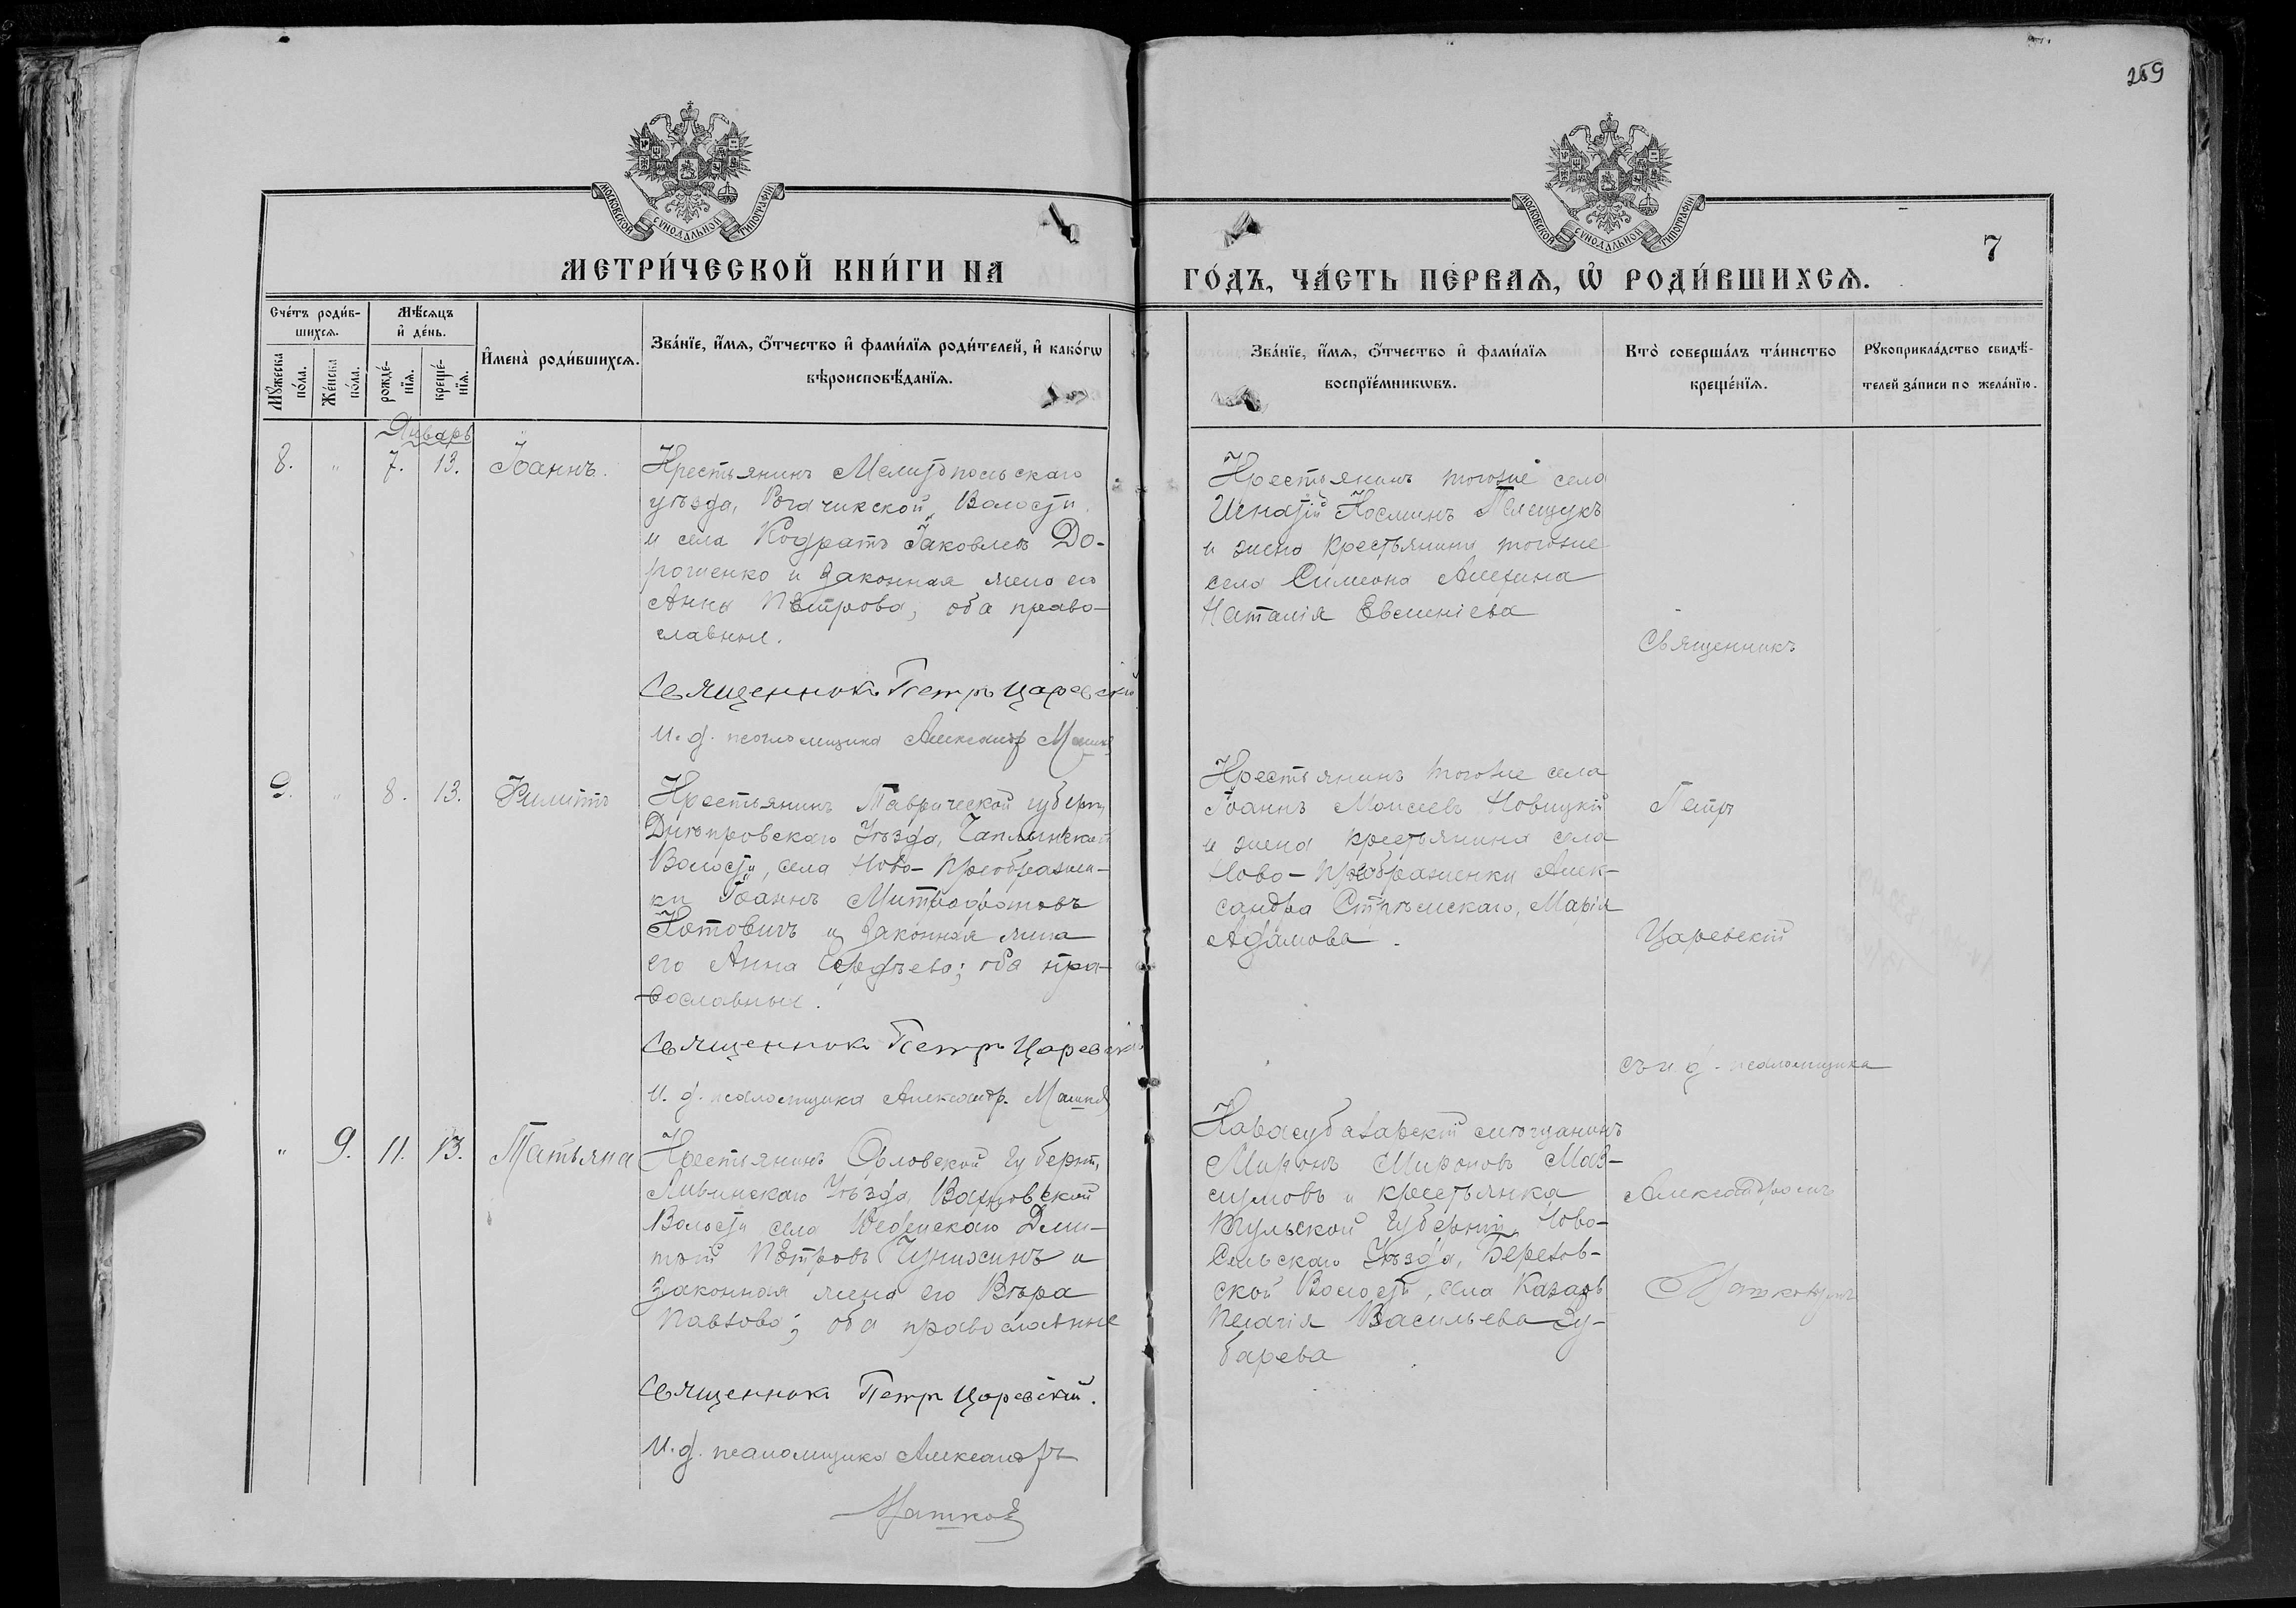 259
МОСКОВСКОЙ СУНОДАЛЬНОЙ ТИПОГРАФІИ
МОСКОВСКОЙ СУНОДАЛЬНОЙ ТИПОГРАФІИ
7
МЕТРИ́ЧЕСКОЙ КНИ́ГИ НА
ГО́ДЪ, ЧА́СТЬ ПЕ́РВАѦ, Ѡ҃ РОДИ́ВШИХСѦ.
Сче́тъ роди́в-
шихсѧ.
Мѣ́сѧцъ
и҆ де́нь.
Мꙋ́жеска
по́ла.
Же́нска
по́ла.
рожде́-
нїѧ.
креще́-
нїѧ.
И҆мена̀ роди́вшихсѧ.
Зва́нїе, и҆́мѧ, ѻ҆́тчество и҆ фами́лїѧ роди́телей, и҆ како́гѡ
вѣроисповѣ́данїѧ.
Зва́нїе, и҆́мѧ, ѻ҆́тчество и҆ фами́лїѧ
воспрїе́мникѡвъ.
Кто̀ соверша́лъ та́инство
креще́нїѧ.
Рꙋкоприкла́дство свидѣ́-
телей за́писи по жела́нїю.
Январь
8. " 7. 13. Іоаннъ.
Крестьянинъ Мелитопольскаго
уѣзда, Рогачикской, Волости
и села Кодратъ Іаковлевъ До-
рошенко и законная жена его
Анна Петрова; оба право-
славные.
Священникъ Петръ Царевскій
И. д. псаломщика Александр Машков
Крестьянинъ тогоже села
Игнатій Косминъ Полещукъ
и жена крестьянина тогоже
села Симеона Алехина
Наталія Евгеніева
Священникъ
9. " 8. 13. Филиппъ
Крестьянинъ Таврической губерн,
Днѣпровскаго Уѣзда, Чаплынской
Волости, села Ново-Преображен-
ки Іоаннъ Митрофановъ
Котовичъ и законная жена
его Анна Сергѣева; оба пра-
вославные.
Священникъ Петръ Царевскій
И. д. псаломщика Александр. Машков
Крестьянинъ тогоже села
Іоаннъ Моисеевъ Новицкій
и жена крестьянина села
Ново-Преображенки Алек-
сандра Стрѣмскаго, Марія
Адамова.
Петръ
Царевскій
съ и. д. псаломщика
" 9. 11. 13. Татьяна
Крестьянинъ Орловской губерн,
Ливинскаго Уѣзда,
Волости села Дми-
трій Петровъ и
законная жена его Вѣра
Павлова; оба православные
Священникъ Петръ Царевскій.
И. д. псаломщика Александръ
Машков
мѣщанинъ
Миронъ Мироновъ Мак-
симовъ и крестьянка
Тульской Губерніи, Ново-
Сильскаго Уѣзда, Березов-
ской Волости, села Казарь
Пелагія Васильева Зу-
барева
Александромъ
Машковымъ